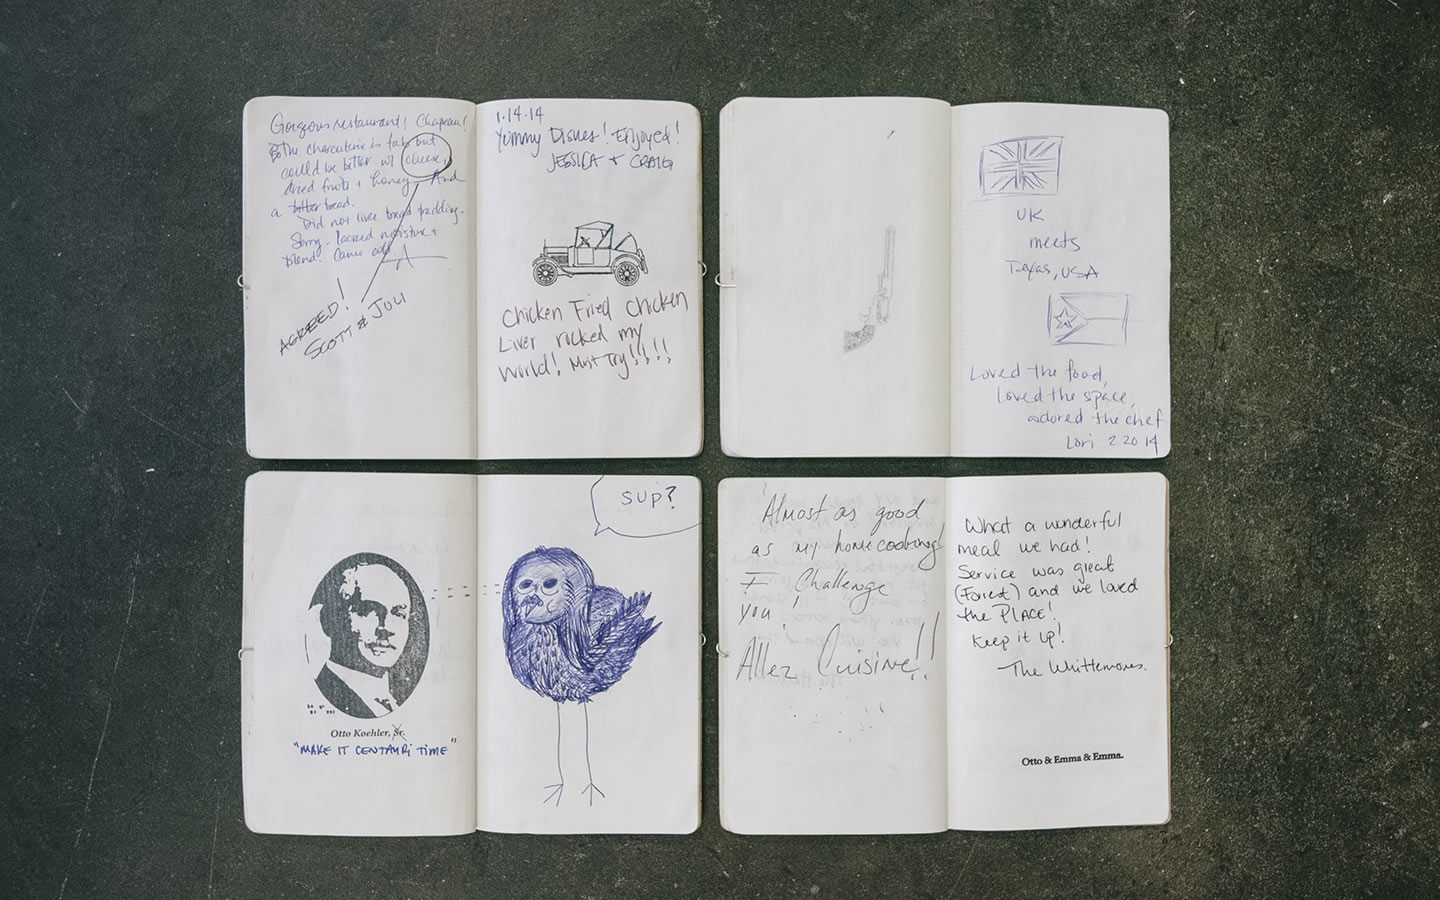 Gorgeous restaurant! Chapeau!
The charcuterie is fab but
could be better w/ cheese,
dried fruits + honey. And
a bread.
Did not like bread pudding -
Sorry - lacked moisture +
blend. Came cold.
AGREED!
SCOTT & JULI
1.14.14
Yummy Dishes! Enjoyed!
JESSICA + CRAIG
Chicken Fried Chicken
Liver rocked my
World! Must Try!!!!
UK
meets
Texas, USA
Loved the food,
loved the space,
adored the chef
Lori. 2 20 14
Otto Koehler, Sr.
"MAKE IT CENTAURI TIME"
SUP?
Almost as good
as my home cooking!
I Challenge
you!
Allez Cuisine!!
What a wonderful
meal we had!
Service was great
(Forest) and we loved
the PLACE!
Keep it up!
The Whittemores.
Otto & Emma & Emma.